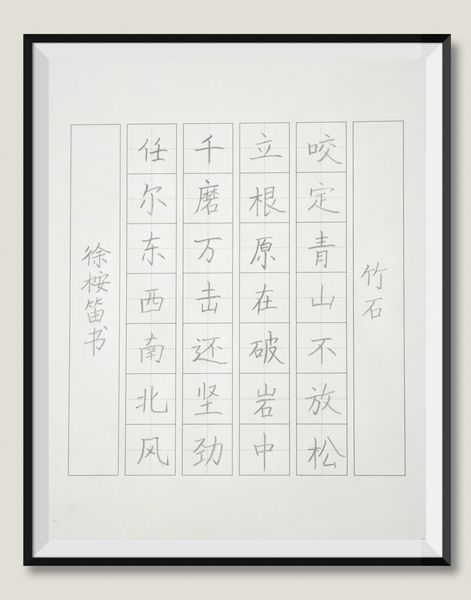 竹石
咬定青山不放松
立根原在破岩中
千磨万击还坚劲
任尔东西南北风
徐桉笛书